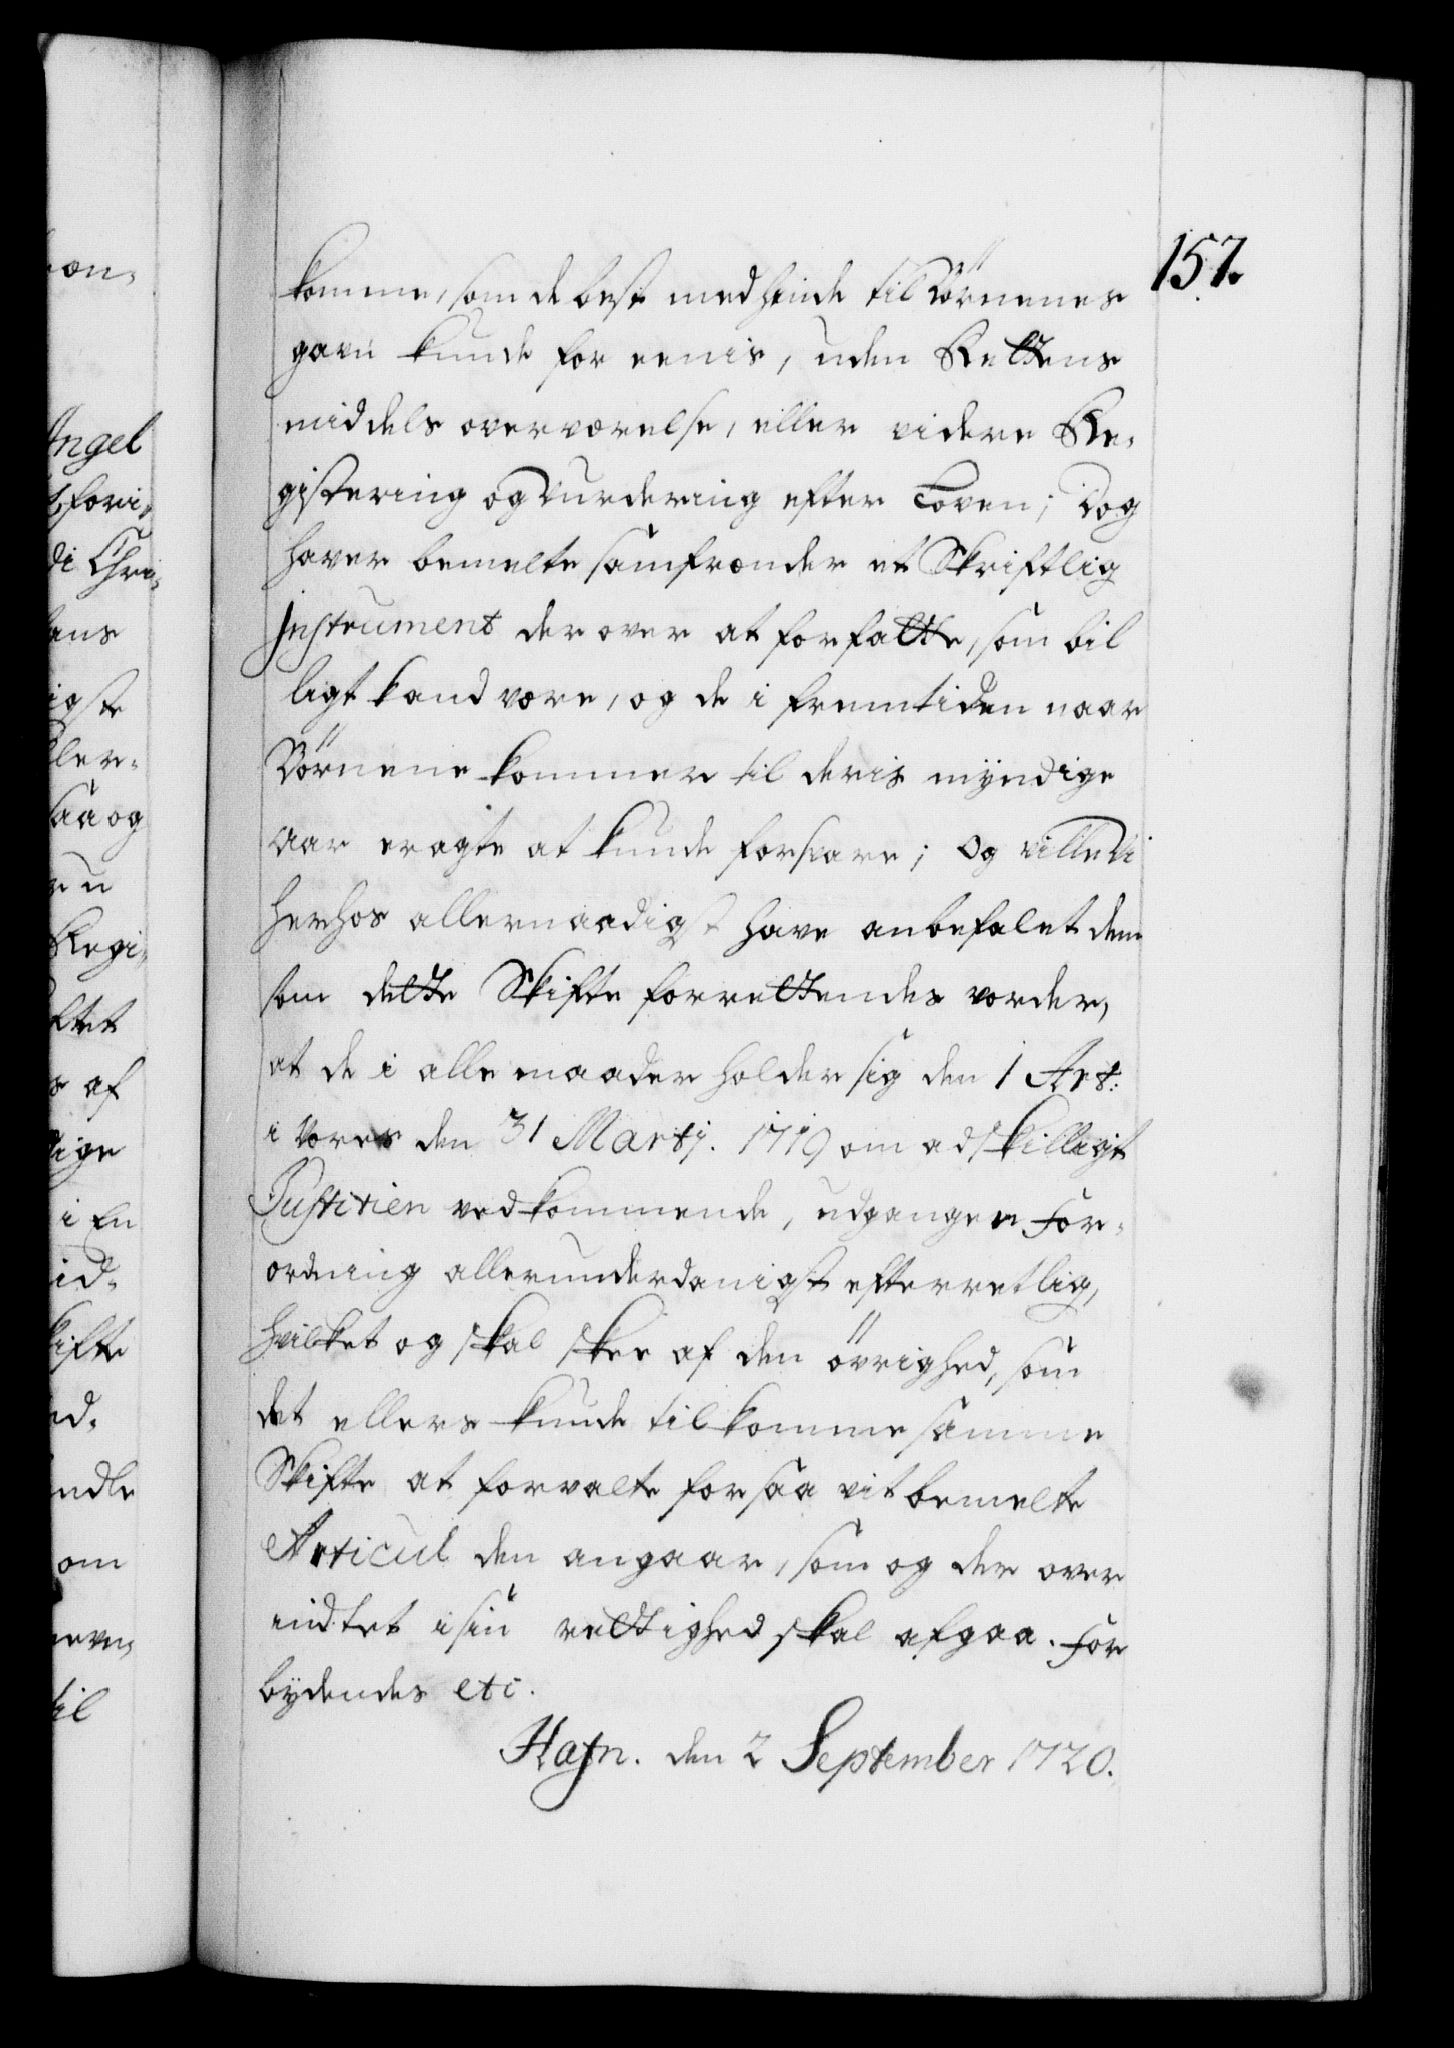 157.
komme, som de best med hinde til Börnenes
gavn kunde for eenis, uden Rettens
middels overværelse, eller videre Re-
gistering og Vurdering efter Loven; Dog
haver bemelte samfrænder et Skriftlig
Instrument der over at forfatte, som bil
ligt kand være, og de i fremtiden naar
Börnene kommer til deris mÿndige
aar eragte at kunde forsvare; Og ville Vi
herhos allernaadigst have anbefalet dem
som dette Skifte forrettendes vorder,
at de i alle maader holder sig den 1 Art:
i Vores den 31 Martj. 1719 om adskilligt
Justitien vedkommende, udgangen For-
ordning allerunderdanigst efterretlig,
hvilket og skal skee af den övrighed, som
det ellers kunde tilkomme samme
Skifte at forvalte forsaa vit bemelte
Articul den angaar, som og der over
indtet i sin rettighed skal afgaa. For
bÿdendes etc.
Hafn. den 2 September 1720.